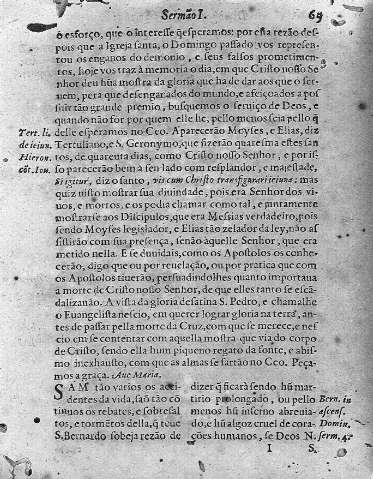 Sermão I. 69
o esforço, que o interesse q̃ esperamos: por esta rezão des-
pois que a Igreja santa, o Domingo passado vos represen-
tou os enganos do demonio, e seus falsos prometimen-
tos, hoje vos traz à memoria o dia, em que Cristo nosso Se
nhor deu hũa mostra da gloria que ha de dar aos que o ser-
uem, pera que desenganados do mundo, e afeiçoados a pos
suir tão grande premio, busquemos o seruiço de Deos, e
quando não for por quem elle he, pello menos seja pello q̃
Tert. li. delle esperamos no Ceo. Aparecerão Moyses, e Elias, diz
de ieiun. Tertuliano, e S. Geronymo, que fizerão quaresma estes san
Hieron. tos, de quarenta dias, como Cristo nosso Senhor, e por is-
cõt. Iou. so parecerão bem a seu lado com resplandor, e majestade,
diz o santo, vis cum Christo transfigurari ieiuna: mas
quiz nisto mostrar sua diuindade, pois era Senhor dos vi-
uos, e mortos, e os podia chamar como tal, e juntamente
mostrarse aos Discipulos, que era Messias verdadeiro, pois
sendo Moyses legislador, e Elias tão zelador da ley, não as
sistirão com sua presença, senão àquelle Senhor, que era
metido nella. E se duuidais, como os Apostolos os conhe-
cerão, digo que ou por reuelação, ou por pratica que com
os Apostolos tiuerão, persuadindolhes quanto importaua
a morte de Cristo nosso Senhor, de que elles tanto se escã-
dalizauão. A vista da gloria desatina S. Pedro, e chamalhe
o Euangelista nescio, em querer lograr gloria na terra, an-
tes de passar pella morte da Cruz, com que se merece, e nes
cio em se contentar com aquella mostra que via do corpo
de Cristo, sendo ella hum piqueno regato da fonte, e abis-
mo inexhausto, com que as almas se fartão no Ceo. Peça-
mos a graça. Aue Maria.
SAM tão varios os aci-
dentes da vida, saõ tão cõ
tinuos os rebates, e sobresal
tos, e tormẽtos della, q̃ teue
S. Bernardo sobeja rezão de
dizer q̃ ficarà sendo hũ mar-
tirio prolongado, ou pello Bern. in
menos hũ inferno abreuia- ascens.
do, e hũ algoz cruel de cora- Domin.
ções humanos, se Deos N. serm. 4.
I S.